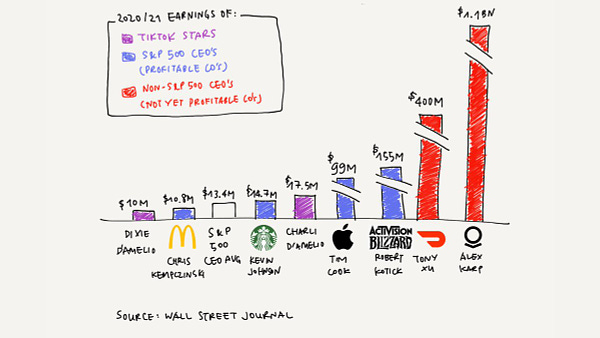 2020/21 EARNINGS OF:
TIKTOK STARS
S&P 500 CEO'S
(PROFITABLE CO'S)
NON-S&P 500 CEO'S
(NOT YET PROFITABLE CO'S)
$10M
$10.8M
$13.4M
$14.7M
$17.5M
$99M
$155M
$400M
$1.1BN
DIXIE
D'AMELIO
CHRIS
KEMPCZINSKI
S&P
500
CEO AVG
KEVIN
JOHNSON
CHARLI
D'AMELIO
TIM
COOK
ACTIVISION
BLIZZARD
ROBERT
KOTICK
TONY
XU
ALEX
KARP
SOURCE: WALL STREET JOURNAL